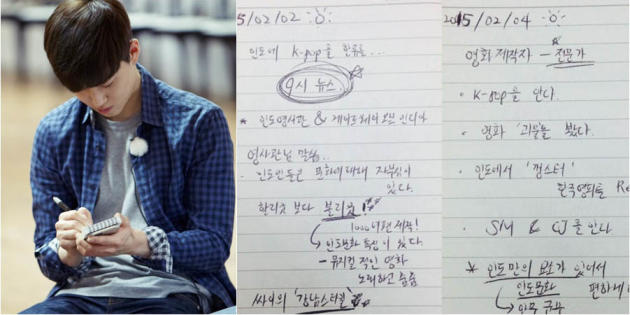 5/02/02
인도에 K-pop을 한류를...
9시 뉴스
* 인도영사관 & 게이트웨이 오브 인디아
영사관님 말씀..
· 인도인들은 문화에 대해 자부심이
있다.
할리웃 보다 볼리웃!
1000여편 제작!
인도문화 특징이 있다.
- 뮤지컬적인 영화
노래하고 춤춤
싸이의 "강남스타일"
2015/02/04
영화 제작자 - 전문가
· K-pop을 안다.
· 영화 '괴물'을 봤다.
· 인도에서 '갱스터'
한국영화를 Re
· SM & CJ를 안다
* 인도만의 요소가 있어서
인도문화
편하게